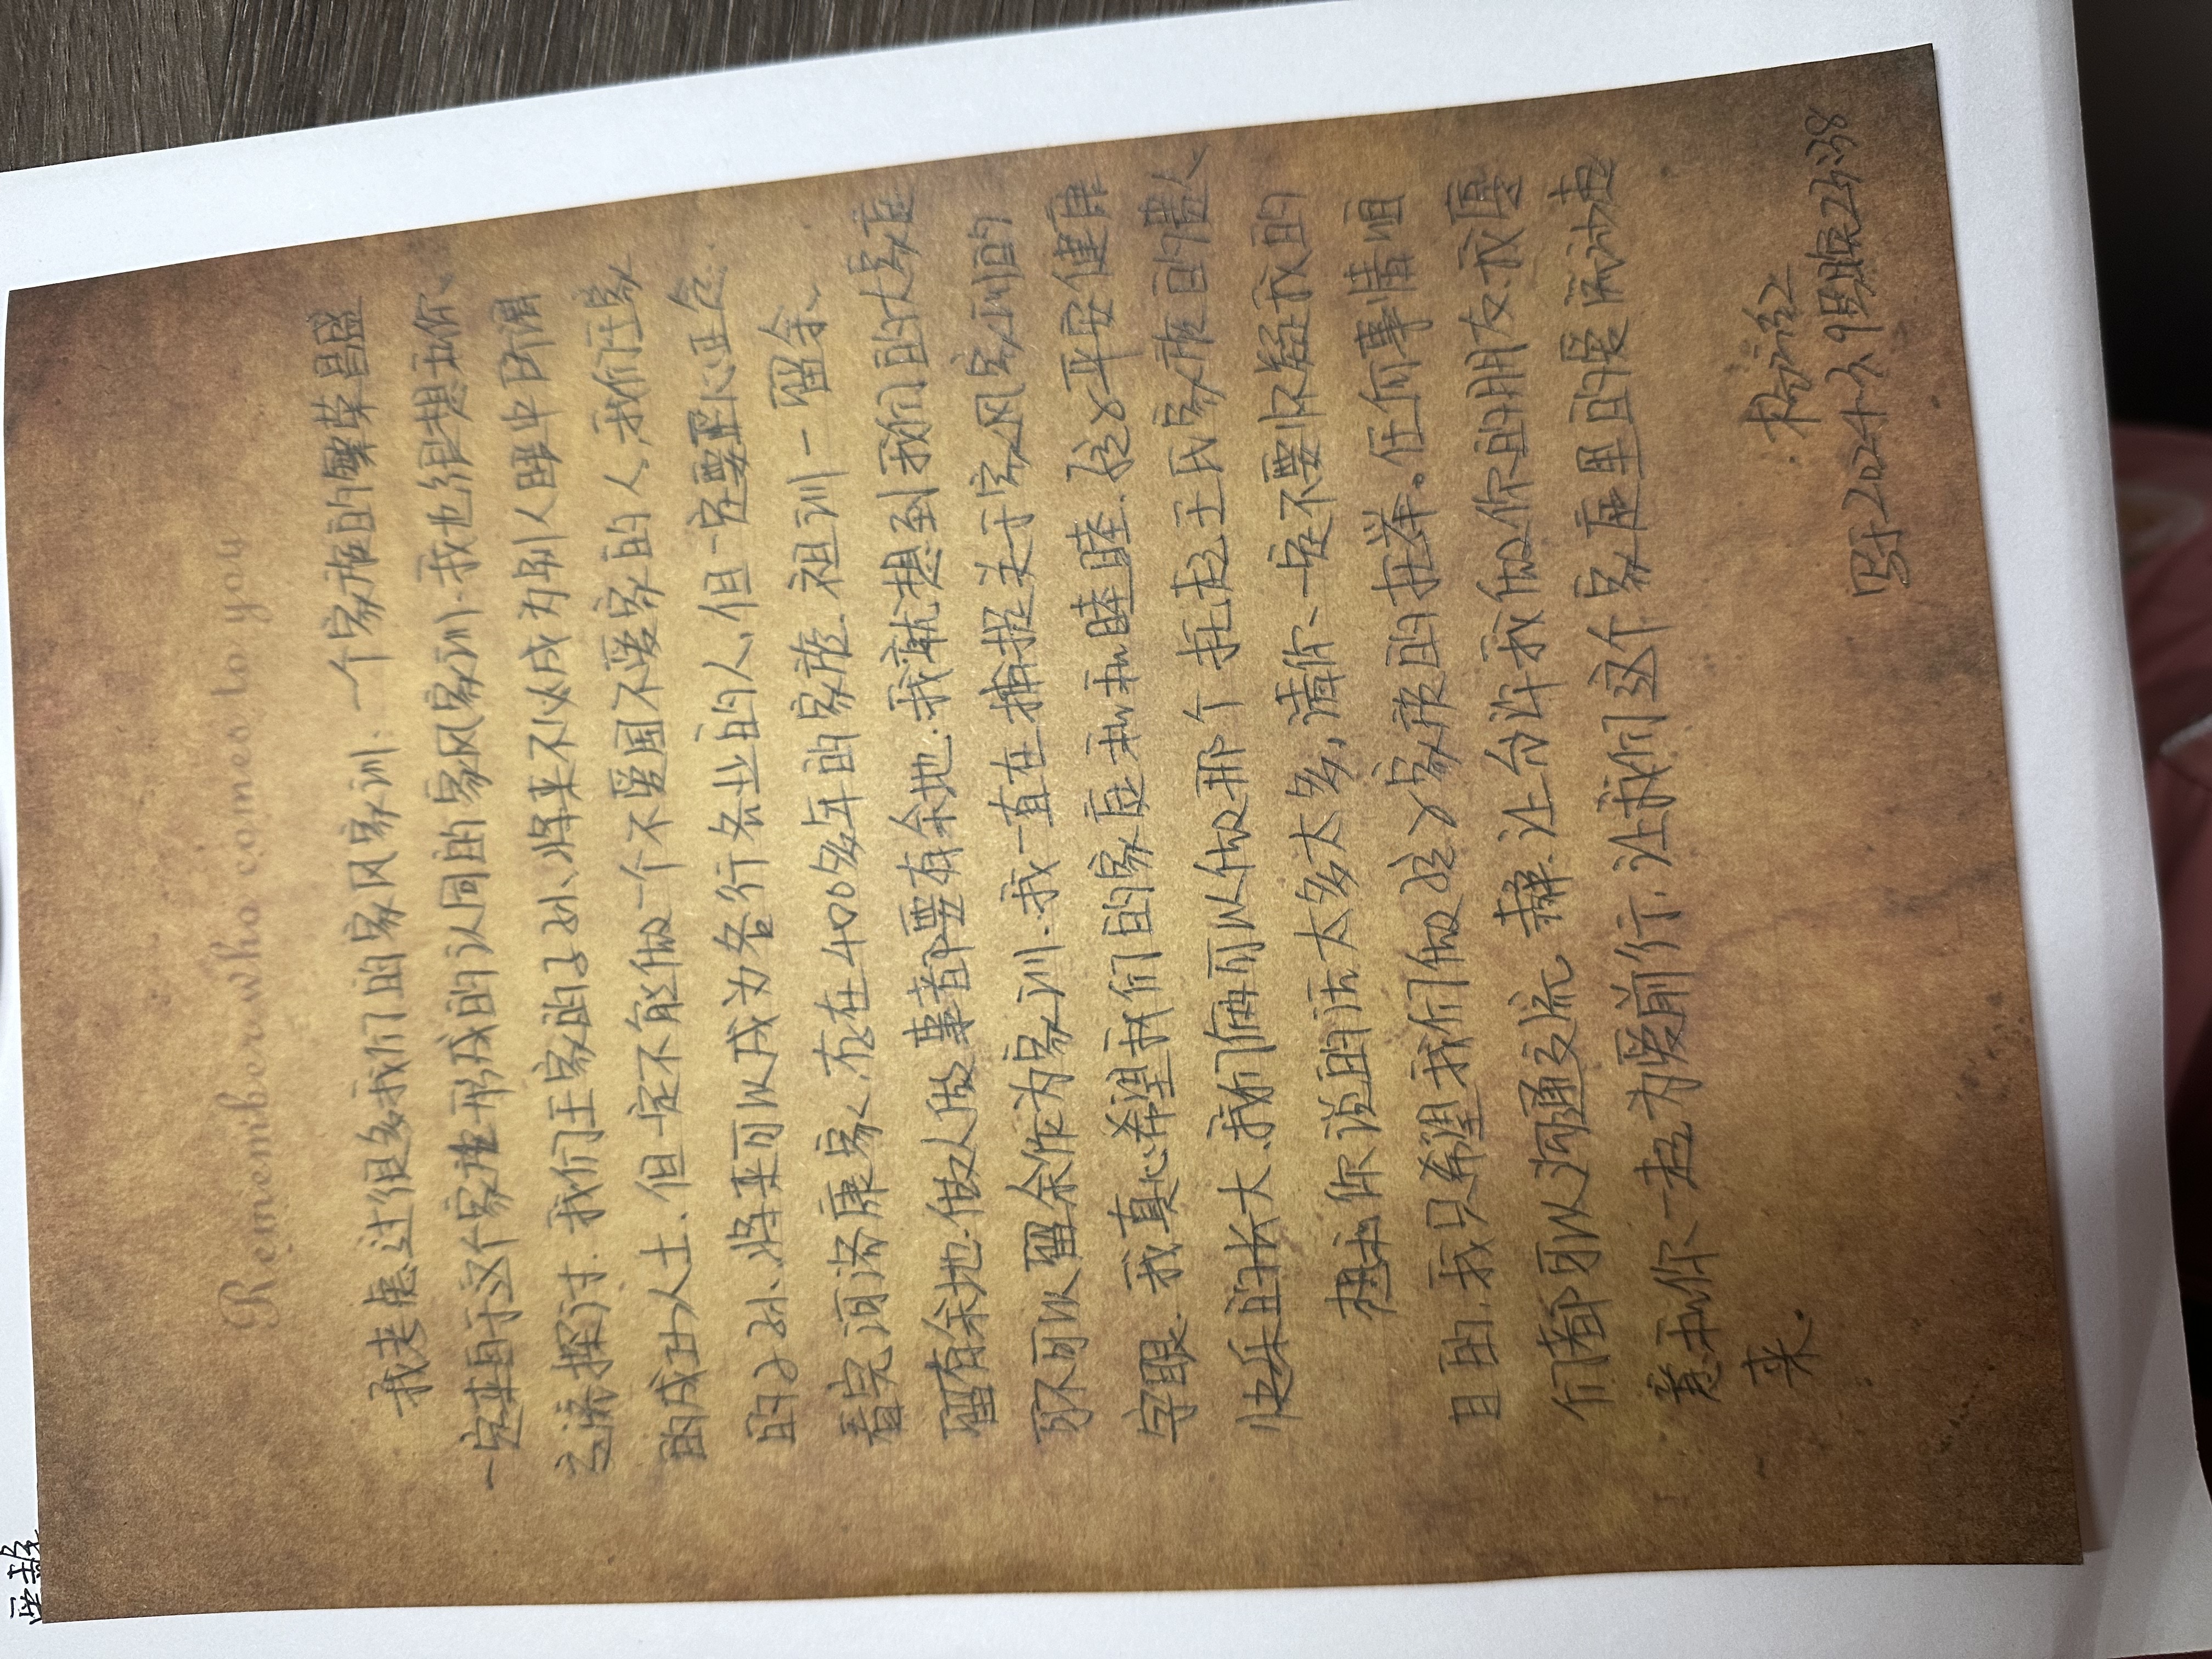 Remember who comes to you
我考虑过很多我们的家风家训：一个家族的繁荣昌盛
一定来自于这个家族形成的认同的家风家训.我也很想和你、
交流探讨.我们王家的子孙、将来不必成为别人眼中所谓
的成功人士.但一定不能做一个不爱国不爱家的人,我们王家
的子孙、将来可以成为各行各业的人,但一定要正心正念.
看完河洛康家、存在400多年的家族.祖训一留余、
留有余地.做人做事都要有余地.我就想到我们的大家庭
可不可以留余作为家训.我一直在捕捉关于家风家训的
字眼.我真心希望我们的家庭和和睦睦.孩子平安健康
快乐的长大.我们俩可以做那个托起王氏家族的儒人
想和你说的话太多太多,请你、一定不要怀疑我的
目的.我只希望我们做好家族的托举。任何事情咱
们都可以沟通交流.  让台许我做你的朋友.我愿
意和你、一起为爱前行.让我们这个家庭里的爱流动起
来.
写于2024.6.9号晚23:38